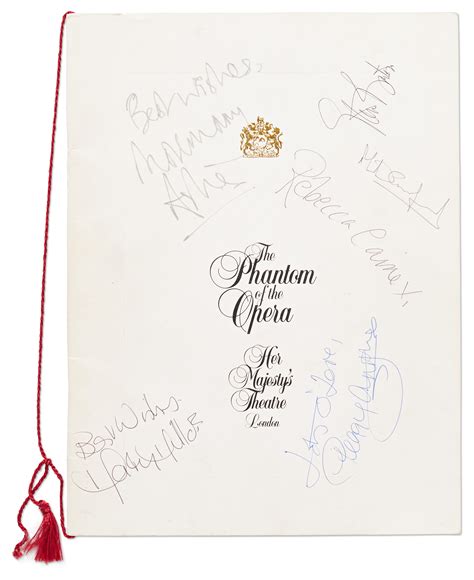 Best Wishes,
Rosemary
Ashe
Rebecca Caine x,
The
Phantom
of the
Opera
Her
Majesty's
Theatre
London
Lots of Love,
Best Wishes